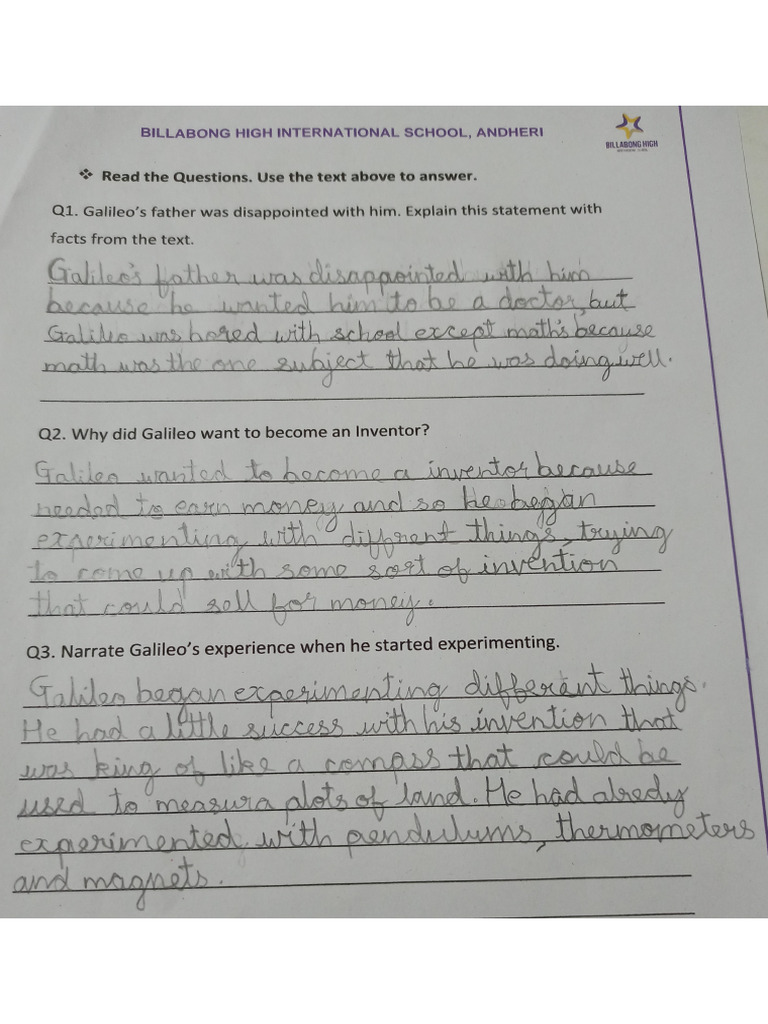 BILLABONG HIGH INTERNATIONAL SCHOOL, ANDHERI
BILLABONG HIGH
❖ Read the Questions. Use the text above to answer.
Q1. Galileo's father was disappointed with him. Explain this statement with
facts from the text.
Galileo's father was disappointed with him
because he wanted him to be a doctor, but
Galileo was bored with school except math's because
math was the one subject that he was doing well.
Q2. Why did Galileo want to become an Inventor?
Galileo wanted to become a inventor because
needed to earn money and so he began
experimenting with different things, trying
to come up with some sort of invention
that could sell for money.
Q3. Narrate Galileo's experience when he started experimenting.
Galileo began experimenting different things.
He had a little success with his invention that
was king of like a compass that could be
used to measura plots of land. He had alredy
experimented with pendulums, thermometers
and magnets.